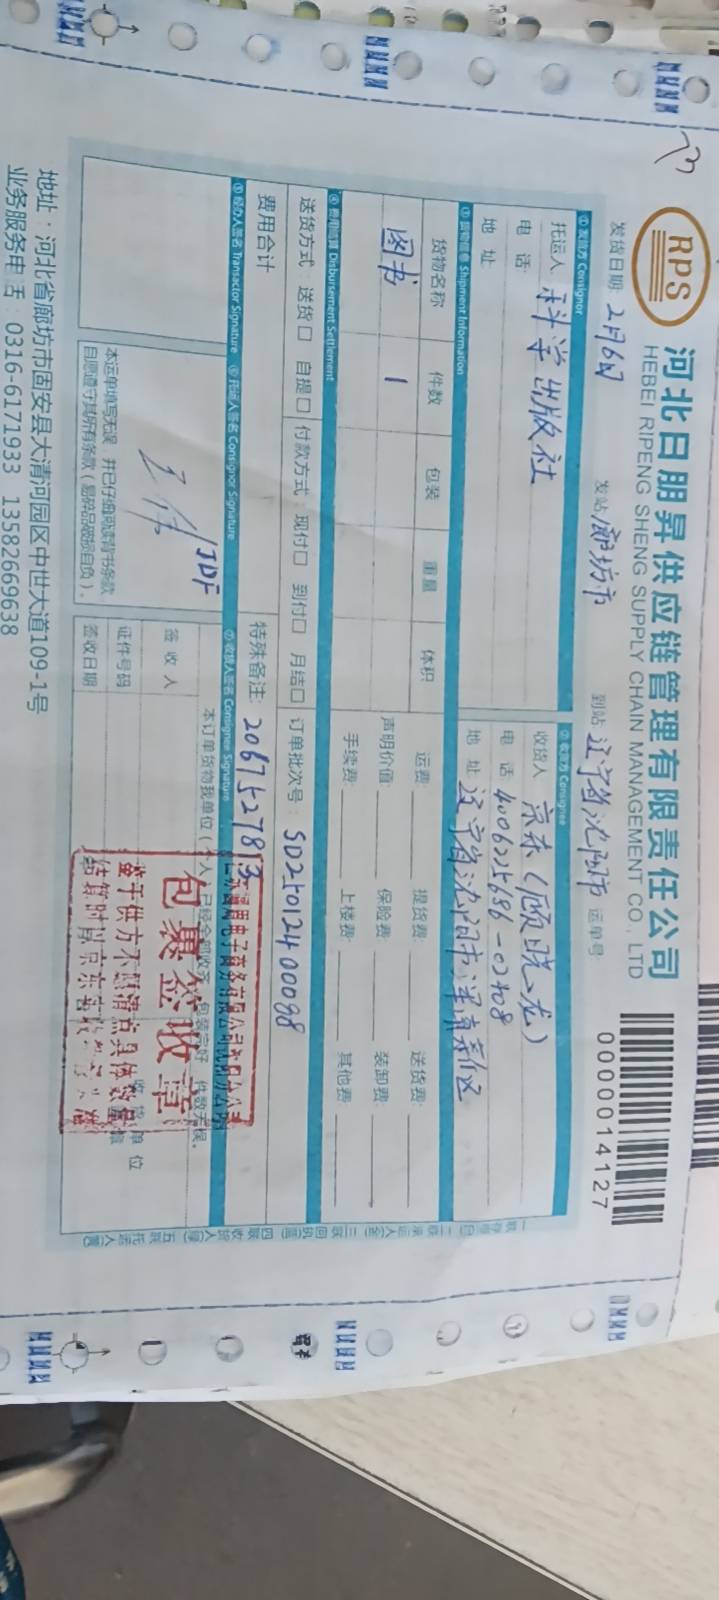 RPS
河北日朋昇供应链管理有限责任公司
HEBEI RIPENG SHENG SUPPLY CHAIN MANAGEMENT CO., LTD
0000014127
发货日期: 2月6日 发站: 廊坊市 到站: 辽宁省沈阳市 运单号:
① 发货方 Consignor ② 收货方 Consignee
托运人 科学出版社 收货人 京东(顾晓龙)
电 话: 电 话 4006225686-02408
地 址 地 址 辽宁省沈阳市浑南新区
③ 货物信息 Shipment Information
货物名称 件数 包装 重量 体积 运费: 提货费: 送货费:
图书 1 声明价值: 保险费: 装卸费:
手续费: 上楼费: 其他费:
④ 费用结算 Disbursement Settlement
送货方式: 送货□ 自提□ 付款方式: 现付□ 到付□ 月结□ 订单批次号: SD25012400098
费用合计 特殊备注: 2067527813
⑤ 经办人签名 Transactor Signature ⑥ 托运人签名 Consignor Signature ⑦ 收货人签名 Consignee Signature
本订单货物我单位(个人)已经全部收齐, 包装完好, 件数无误。
包裹签收章
鉴于供方不愿清点具体数量
JDF
签 收 人
证件号码
签收日期
收 货 单 位
本运单填写无误, 并已仔细阅读背书条款
自愿遵守其所有条款(易碎品破损自负)。
一联存根(白) 二联承运人(金) 三联回执(蓝) 四联收货人(绿) 五联托运人(黄)
地址: 河北省廊坊市固安县大清河园区中世大道109-1号
业务服务电话: 0316-6171933 13582669638